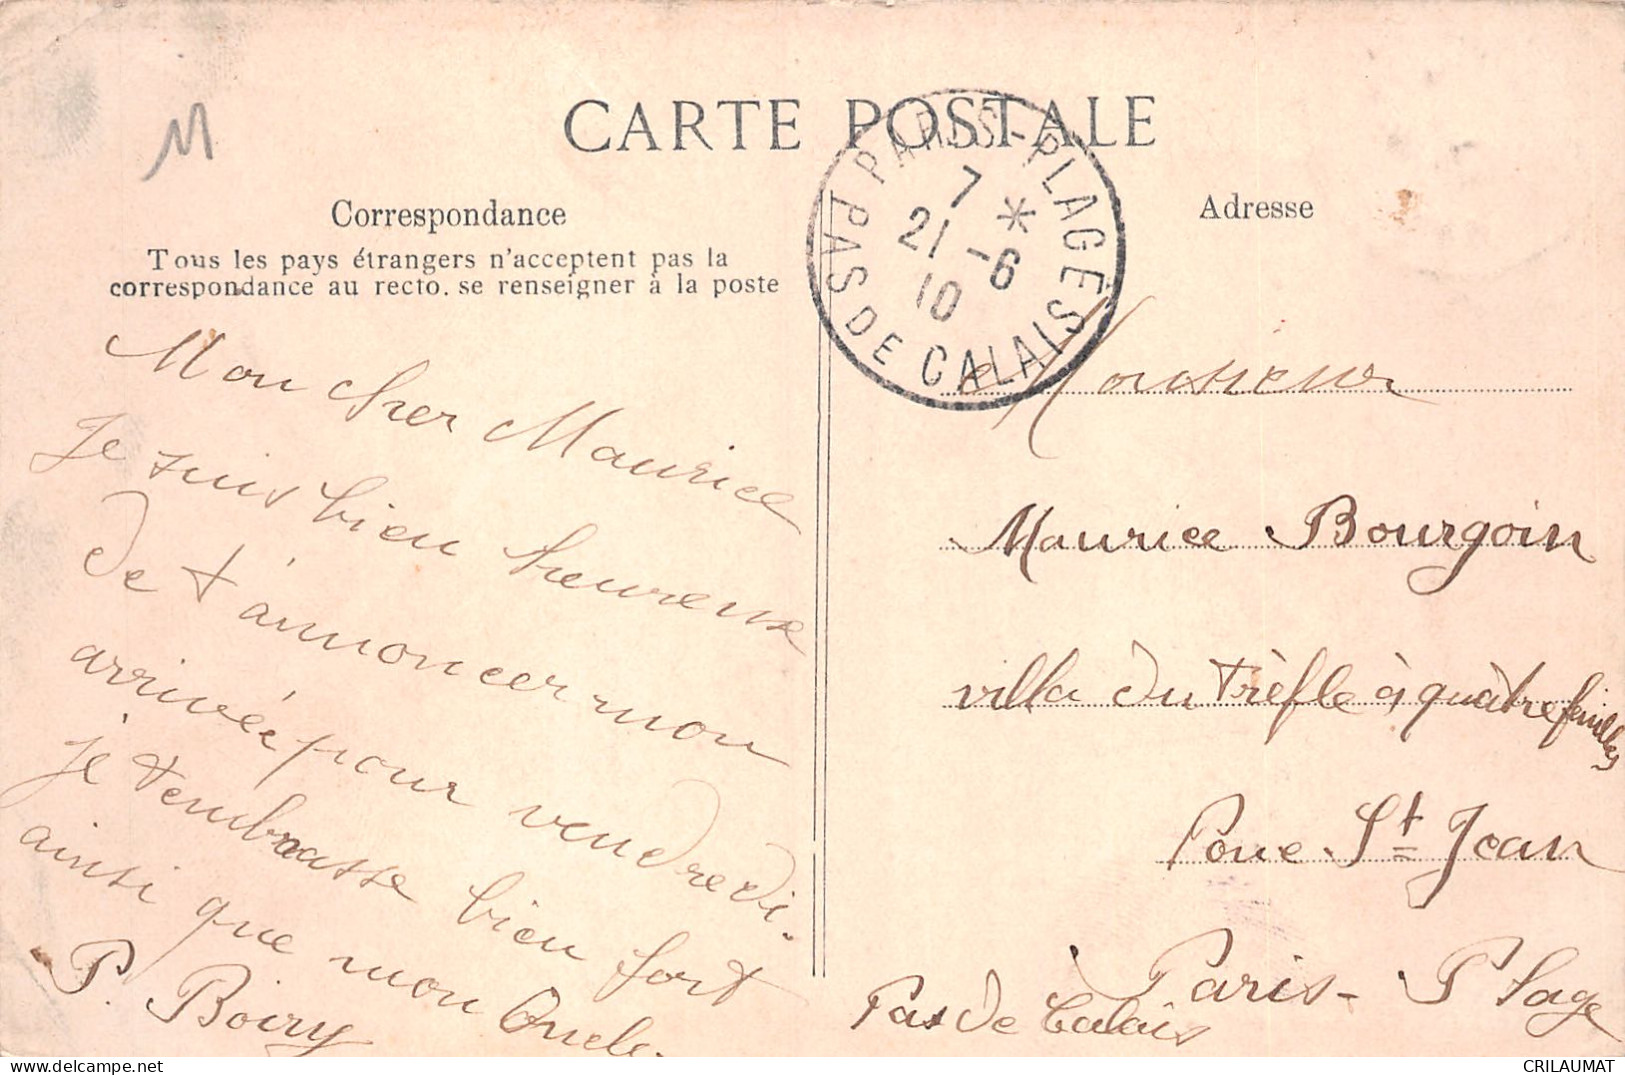 M
CARTE POSTALE
PARIS-PLAGES
7 *
21 -6
10
PAS DE CALAIS
Correspondance
Tous les pays étrangers n'acceptent pas la
correspondance au recto. se renseigner à la poste
Mon cher Maurice
Je suis bien heureuse
de t'annoncer mon
arrivée pour vendredi.
je t'embrasse bien fort
ainsi que mon Oncle.
P. Boiry
Adresse
Monsieur
Maurice Bourgoin
villa du trèfle à quatre feuilles
Rue St Jean
Paris-Plage
Pas de Calais
CRILAUMAT